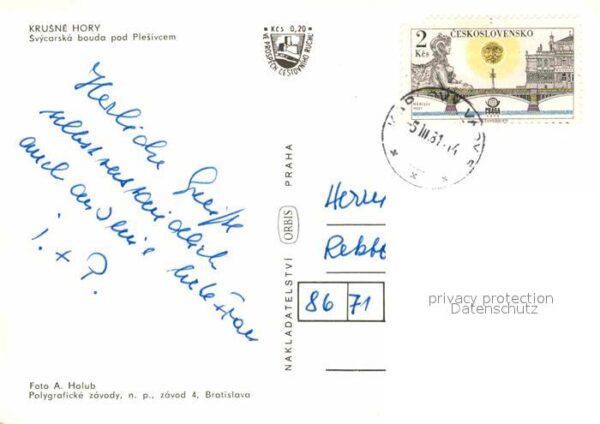 KRUŠNÉ HORY
Švýcarská bouda pod Plešivcem
Kčs 0,20
VE PROSPĚCH CESTOVNÍHO RUCHU
2 Kčs
ČESKOSLOVENSKO
PRAGA
Herzliche Grüße
selbstverständlich
auch an Deine liebe Frau
I. + P.
NAKLADATELSTVÍ ORBIS PRAHA
Herrn
86 71
privacy protection
Datenschutz
Foto A. Holub
Polygrafické závody, n. p., závod 4, Bratislava